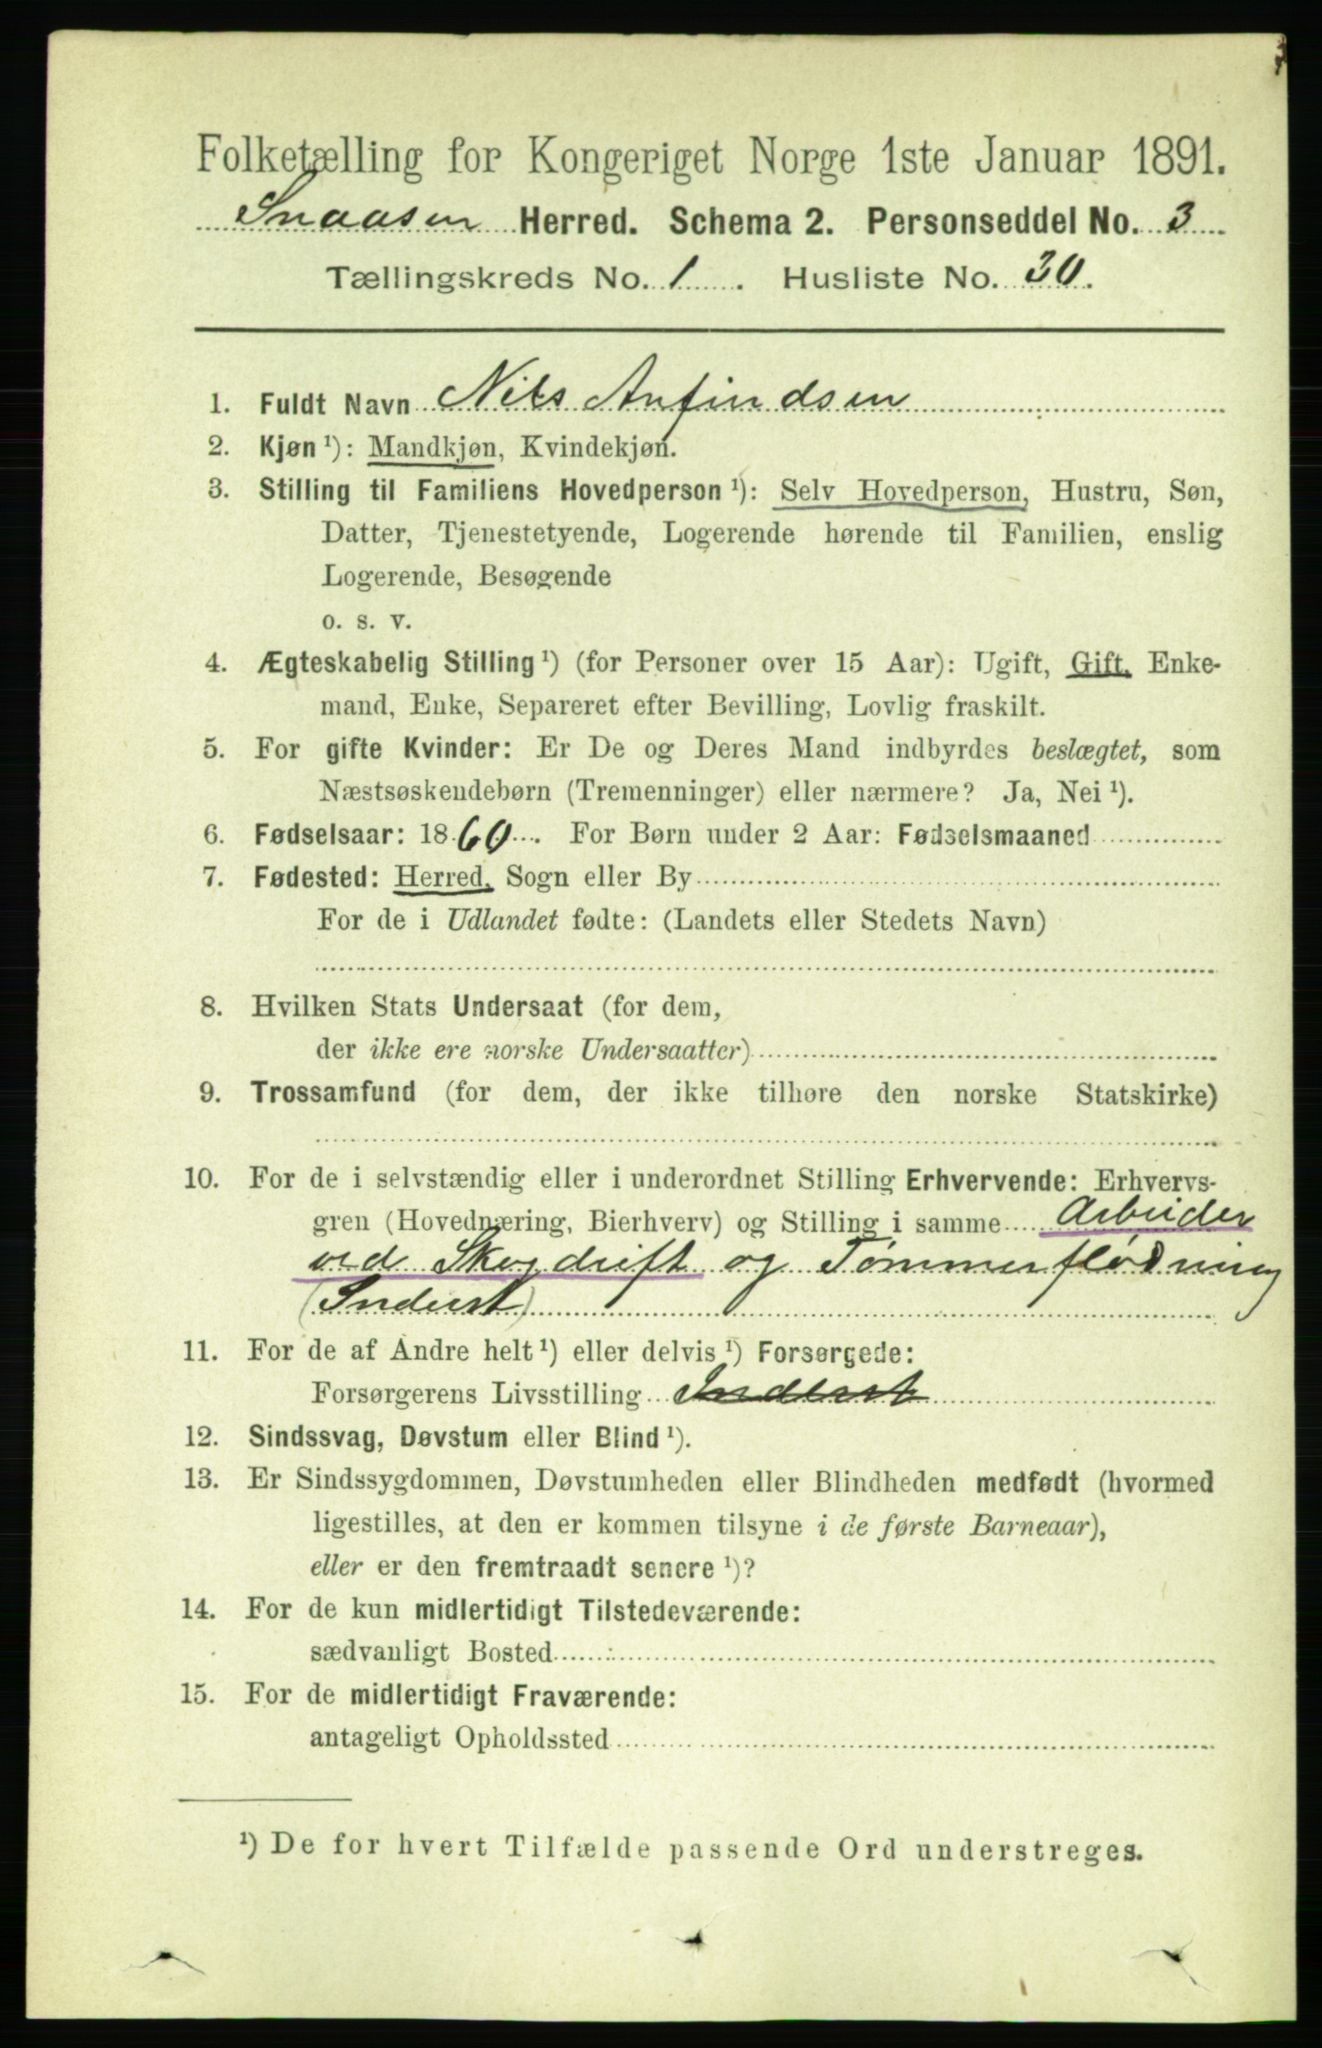 Folketælling for Kongeriget Norge 1ste Januar 1891.
Snaasen Herred. Schema 2. Personseddel No. 3
Tællingskreds No. 1. Husliste No. 30.
1. Fuldt Navn Nils Anfindsen
2. Kjøn ¹): Mandkjøn, Kvindekjøn.
3. Stilling til Familiens Hovedperson ¹): Selv Hovedperson, Hustru, Søn,
Datter, Tjenestetyende, Logerende hørende til Familien, enslig
Logerende, Besøgende
o. s. v.
4. Ægteskabelig Stilling ¹) (for Personer over 15 Aar): Ugift, Gift, Enke-
mand, Enke, Separeret efter Bevilling, Lovlig fraskilt.
5. For gifte Kvinder: Er De og Deres Mand indbyrdes beslægtet, som
Næstsøskendebørn (Tremenninger) eller nærmere? Ja, Nei ¹).
6. Fødselsaar: 1860. For Børn under 2 Aar: Fødselsmaaned
7. Fødested: Herred, Sogn eller By
For de i Udlandet fødte: (Landets eller Stedets Navn)
8. Hvilken Stats Undersaat (for dem,
der ikke ere norske Undersaatter)
9. Trossamfund (for dem, der ikke tilhøre den norske Statskirke)
10. For de i selvstændig eller i underordnet Stilling Erhvervende: Erhvervs-
gren (Hovednæring, Bierhverv) og Stilling i samme Arbeider
ved Skogdrift og Tømmerflødning
(Inderst)
11. For de af Andre helt ¹) eller delvis ¹) Forsørgede:
Forsørgerens Livsstilling Inderst
12. Sindssvag, Døvstum eller Blind ¹).
13. Er Sindssygdommen, Døvstumheden eller Blindheden medfødt (hvormed
ligestilles, at den er kommen tilsyne i de første Barneaar),
eller er den fremtraadt senere ¹)?
14. For de kun midlertidigt Tilstedeværende:
sædvanligt Bosted
15. For de midlertidigt Fraværende:
antageligt Opholdssted
¹) De for hvert Tilfælde passende Ord understreges.